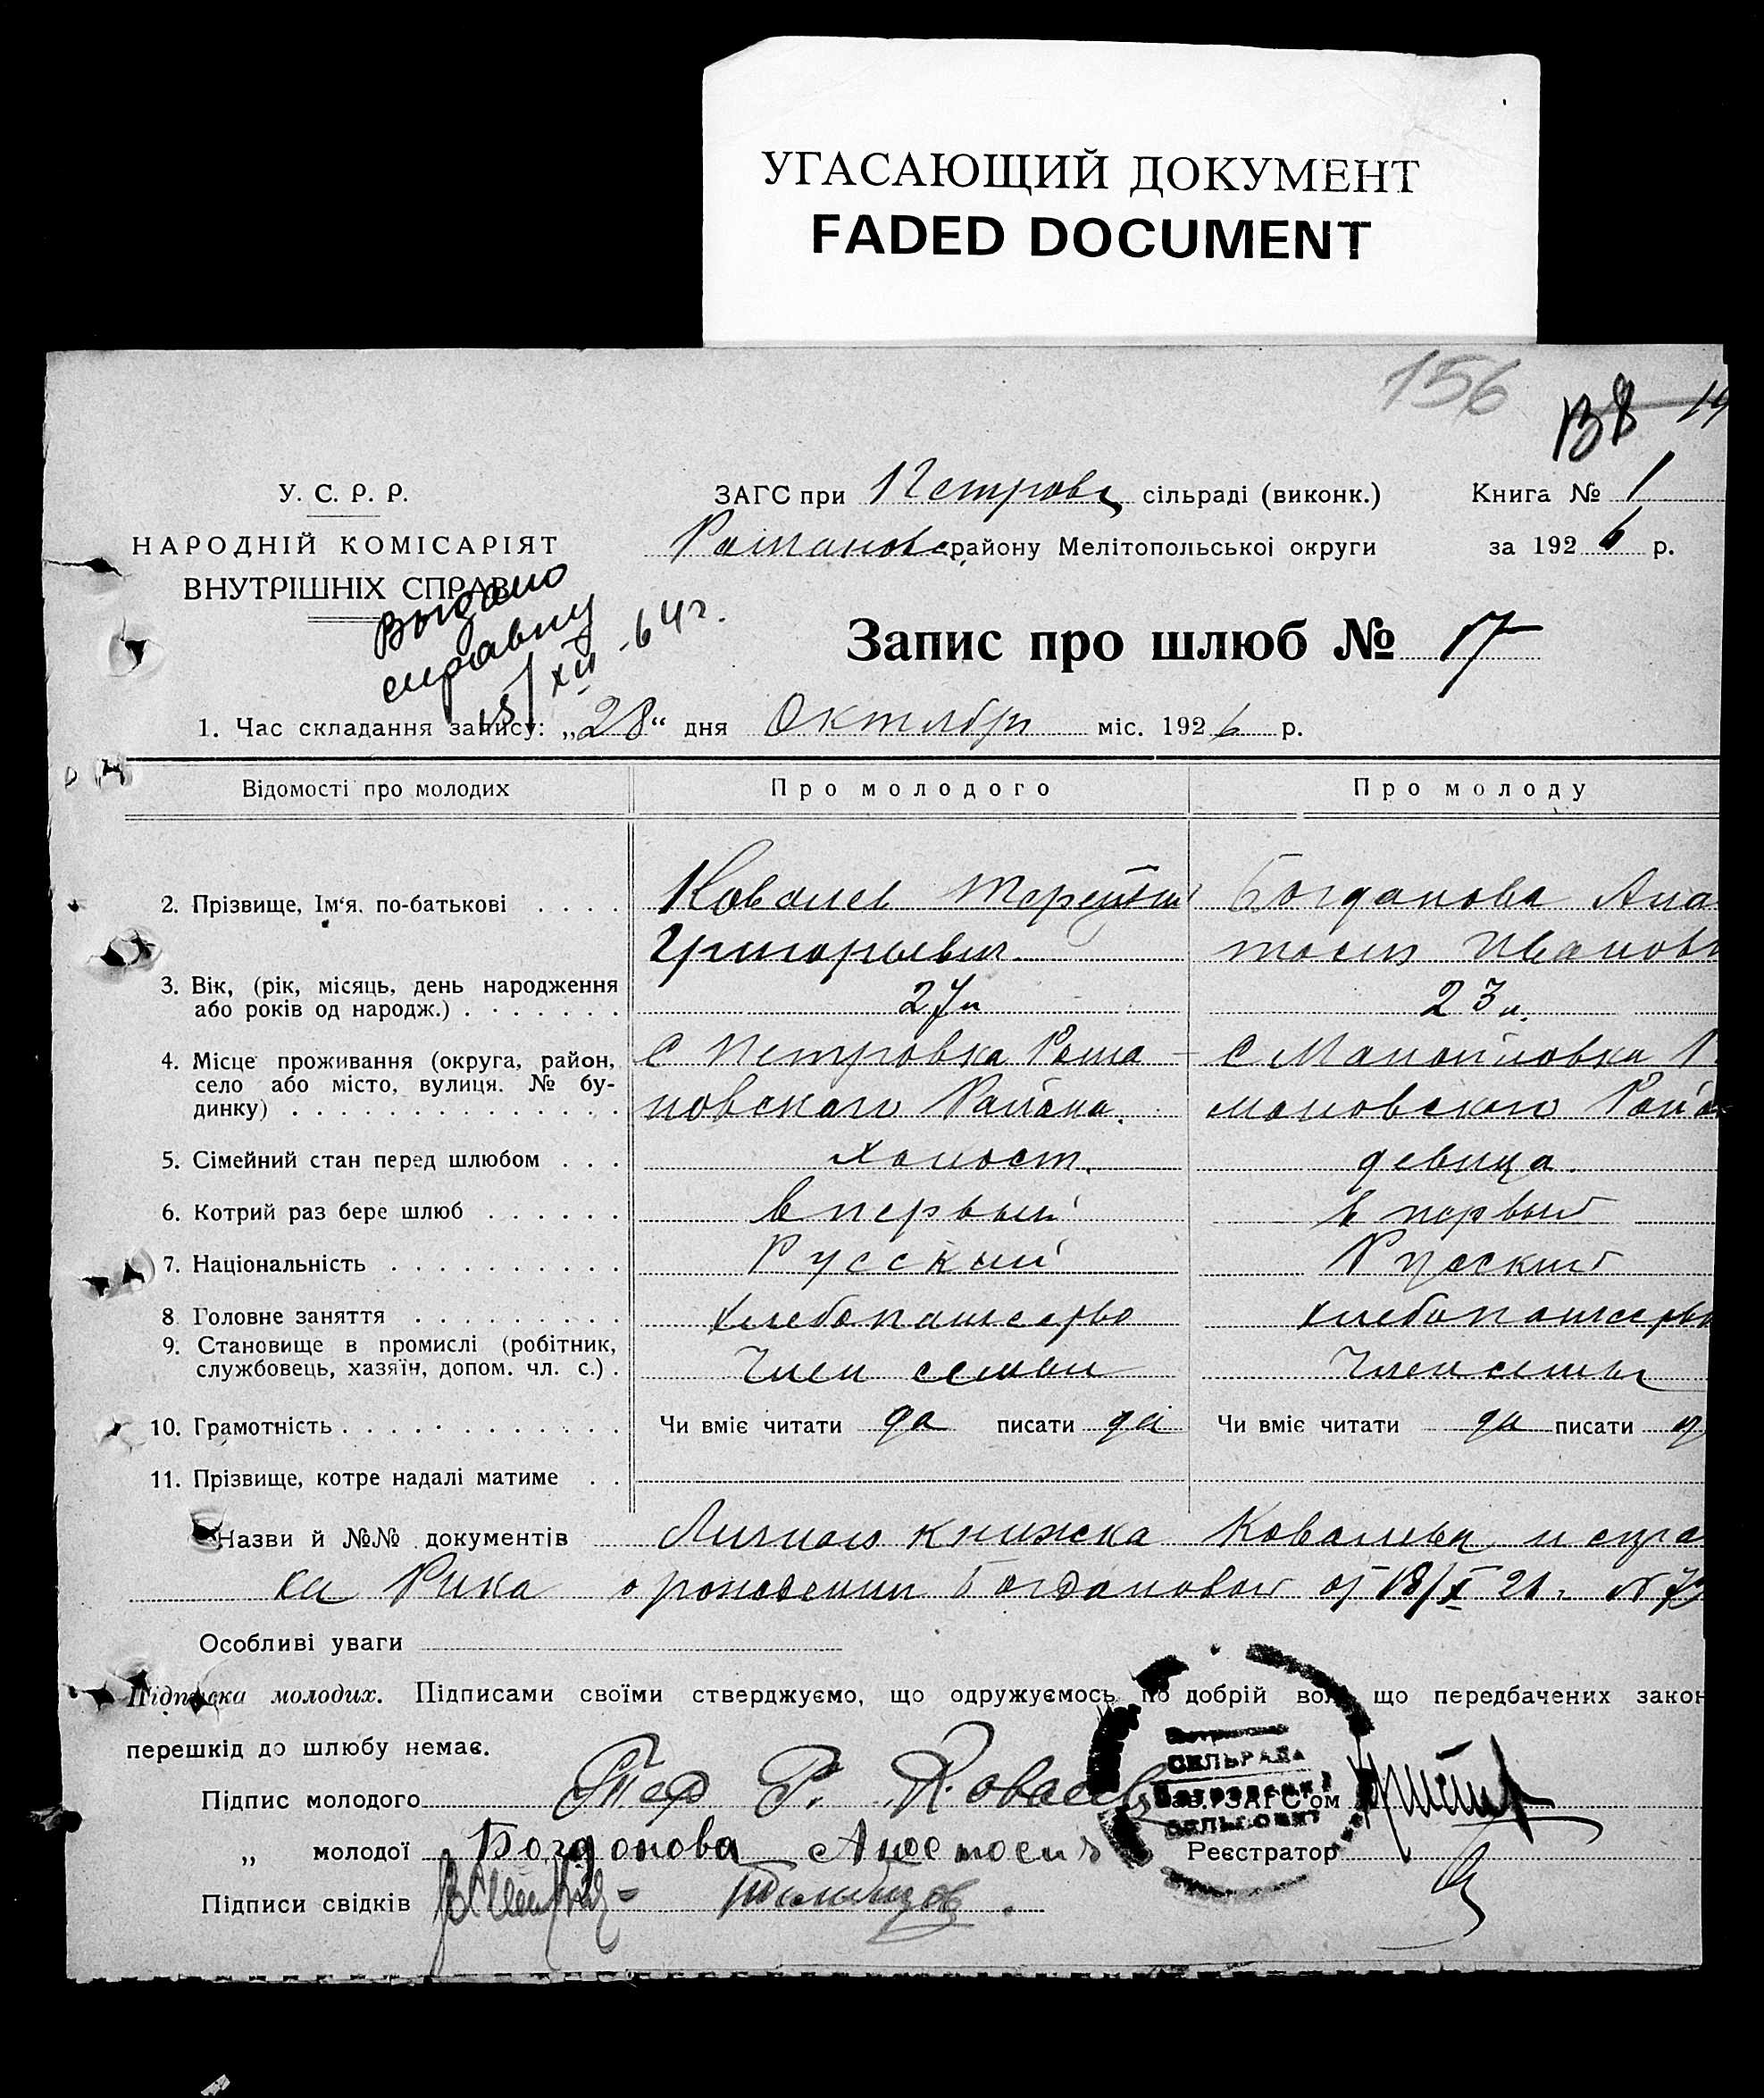 УГАСАЮЩИЙ ДОКУМЕНТ
FADED DOCUMENT
156
У. С. Р. Р.
НАРОДНІЙ КОМІСАРІЯТ
ВНУТРІШНІХ СПРАВ
Выдано
справку
15/XII-64г.
ЗАГС при Петровс сільраді (виконк.)
Романовс району Мелітопольської округи
Книга № 1
за 1926 р.
Запис про шлюб № 17
1. Час складання запису: „28“ дня Октября міс. 1926 р.
Відомості про молодих Про молодого Про молоду
2. Прізвище, Ім'я, по-батькові . . . . Ковалев Терентий Богданова Ана
Григорьевич тасия Иванов
3. Вік, (рік, місяць, день народження
або років од народж.) . . . . . . . 27 л 23 л.
4. Місце проживання (округа, район, с Петровка Рома с Манойловка Р
село або місто, вулиця. № бу-
динку) . . . . . . . . . . . . . . . новского Района. мановского Райо
5. Сімейний стан перед шлюбом . . . холост. девица.
6. Котрий раз бере шлюб . . . . . . в первый в первый
7. Національність . . . . . . . . . . Русский Руский
8. Головне заняття . . . . . . . . . хлебопашество хлебопашество
9. Становище в промислі (робітник,
службовець, хазяїн, допом. чл. с.) . Член семьи Член семьи
10. Грамотність . . . . . . . . . . . . Чи вміє читати да писати да Чи вміє читати да писати
11. Прізвище, котре надалі матиме . .
Назви й №№ документів Личная книжка Ковалева и спра
ка Рика о рождении Богдановой от 18/X 26 г. №
Особливі уваги
Підписка молодих. Підписами своїми стверджуємо, що одружуємось по добрій волі, що передбачених закон
перешкід до шлюбу немає.
Підпис молодого Тер Г. Ковалев
СІЛЬРАДА
Зав. ЗАГС'ом
СЕЛЬСОВЕТ
„ молодої Богданова Анастосия
Реєстратор
Підписи свідків